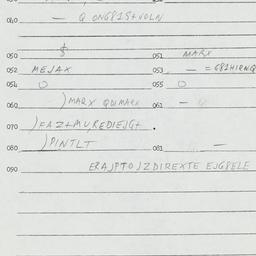 040 — Q ON681S+VOLN
$
050 051 MARX
052 MEJAX 053 — = 681HIRNQ
054 O 055 O
060 )MARX QUMARX 061 —
070 )FAZ+MU,REDIEJG+ .
080 )PINTLT 081 —
090 ERAJPTO)ZDIREXTE EJG8ELE